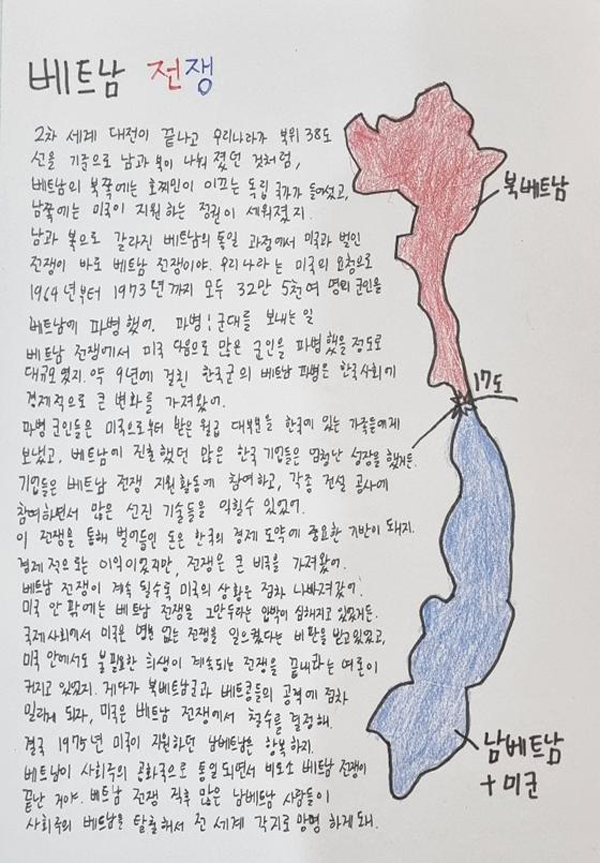 베트남 전쟁
2차 세계 대전이 끝나고 우리나라가 북위 38도
선을 기준으로 남과 북이 나눠 졌던 것처럼,
베트남의 북쪽에는 호찌민이 이끄는 독립 국가가 들어섰고,
남쪽에는 미국이 지원하는 정권이 세워졌지.
남과 북으로 갈라진 베트남의 통일 과정에서 미국과 벌인
전쟁이 바로 베트남 전쟁이야. 우리나라는 미국의 요청으로
1964년부터 1973년까지 모두 32만 5천여 명의 군인을
베트남에 파병했어. 파병: 군대를 보내는 일
베트남 전쟁에서 미국 다음으로 많은 군인을 파병했을 정도로
대규모였지. 약 9년에 걸친 한국군의 베트남 파병은 한국사회에
경제적으로 큰 변화를 가져왔어.
파병 군인들은 미국으로부터 받은 월급 대부분을 한국에 있는 가족들에게
보냈고, 베트남에 진출했던 많은 한국 기업들은 엄청난 성장을 했거든.
기업들은 베트남 전쟁 지원활동에 참여하고, 각종 건설 공사에
참여하면서 많은 선진 기술들을 익힐수 있었어.
이 전쟁을 통해 벌어들인 돈은 한국의 경제 도약에 중요한 기반이 돼지.
경제적으로는 이익이었지만, 전쟁은 큰 비극을 가져왔어.
베트남 전쟁이 계속 될수록 미국의 상황은 점차 나빠져갔어.
미국 안팎에는 베트남 전쟁을 그만두라는 압박이 심해지고 있었거든.
국제사회에서 미국은 명분 없는 전쟁을 일으켰다는 비판을 받고있었고,
미국 안에서도 불필요한 희생이 계속되는 전쟁을 끝내라는 여론이
커지고 있었지. 게다가 북베트남군과 베트콩들의 공격에 점차
밀리게 되자, 미국은 베트남 전쟁에서 철수를 결정해.
결국 1975년 미국이 지원하던 남베트남은 항복하지.
베트남이 사회주의 공화국으로 통일되면서 비로소 베트남 전쟁이
끝난 거야. 베트남 전쟁 직후 많은 남베트남 사람들이
사회주의 베트남을 탈출해서 전 세계 각지로 망명 하게돼.
북베트남
17도
남베트남
+ 미군